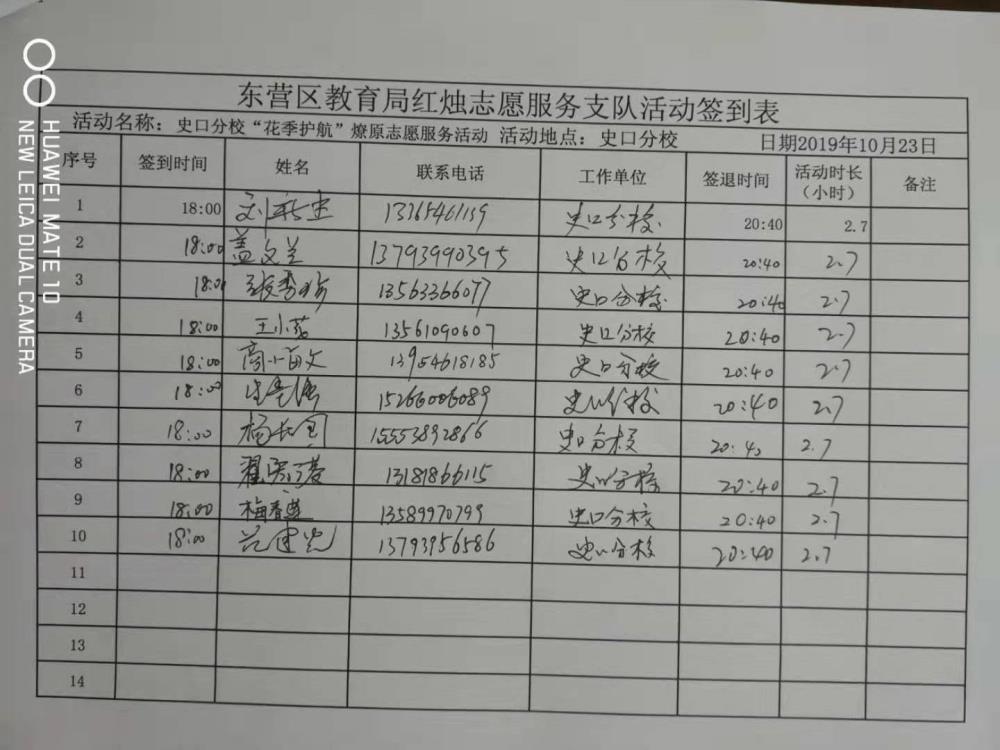 东营区教育局红烛志愿服务支队活动签到表
活动名称：史口分校“花季护航”燎原志愿服务活动 活动地点：史口分校 日期2019年10月23日
序号 签到时间 姓名 联系电话 工作单位 签退时间 活动时长（小时） 备注
1 18:00 史口分校 20:40 2.7
2 18:00 盖文兰 13793990395 史口分校 20:40 2.7
3 18:00 13563366077 史口分校 20:40 2.7
4 18:00 王小茹 13561090607 史口分校 20:40 2.7
5 18:00 13954618185 史口分校 20:40 2.7
6 18:00 15266006089 史口分校 20:40 2.7
7 18:00 15553892866 史口分校 20:40 2.7
8 18:00 13181866115 史口分校 20:40 2.7
9 18:00 梅春莲 13589970799 史口分校 20:40 2.7
10 18:00 13793956586 史口分校 20:40 2.7
11
12
13
14
HUAWEI MATE 10
NEW LEICA DUAL CAMERA